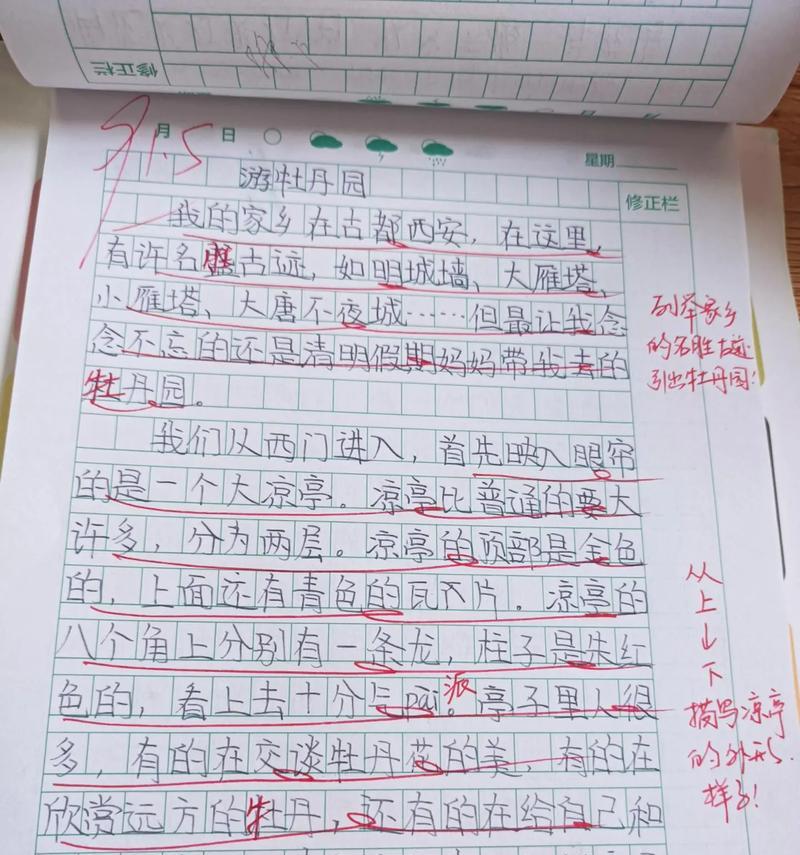 修正栏
91.5
月 日
星期
修正栏
游牡丹园
我的家乡在古都西安，在这里，
有许名胜古迹，如明城墙、大雁塔，
小雁塔、大唐不夜城……但最让我念
念不忘的还是清明假期妈妈带我去的
牡丹园。
列举家乡
的名胜古迹
引出牡丹园！
我们从西门进入，首先映入眼帘
的是一个大凉亭。凉亭比普通的要大
许多，分为两层。凉亭的顶部是金色
的，上面还有青色的瓦片。凉亭的
八个角上分别有一条龙，柱子是朱红
色的，看上去十分气pài。亭子里人很
派
多，有的在交谈牡丹花的美，有的在
欣赏远方的牡丹，还有的在给自己和
从
上
↓
下
描写凉亭
的外形.
样子！